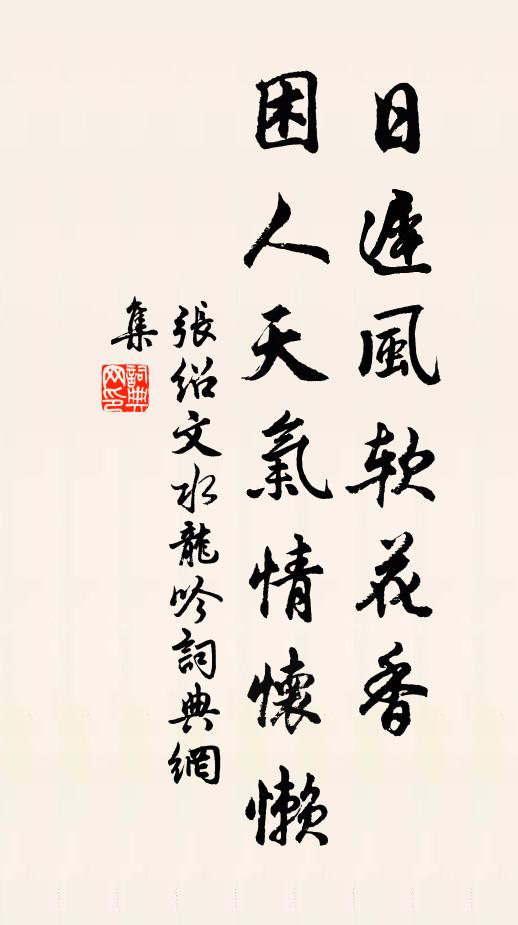 日遲風软花香
困人天氣情懷懒
張紹文水龍吟詞典網
集
詞典网印